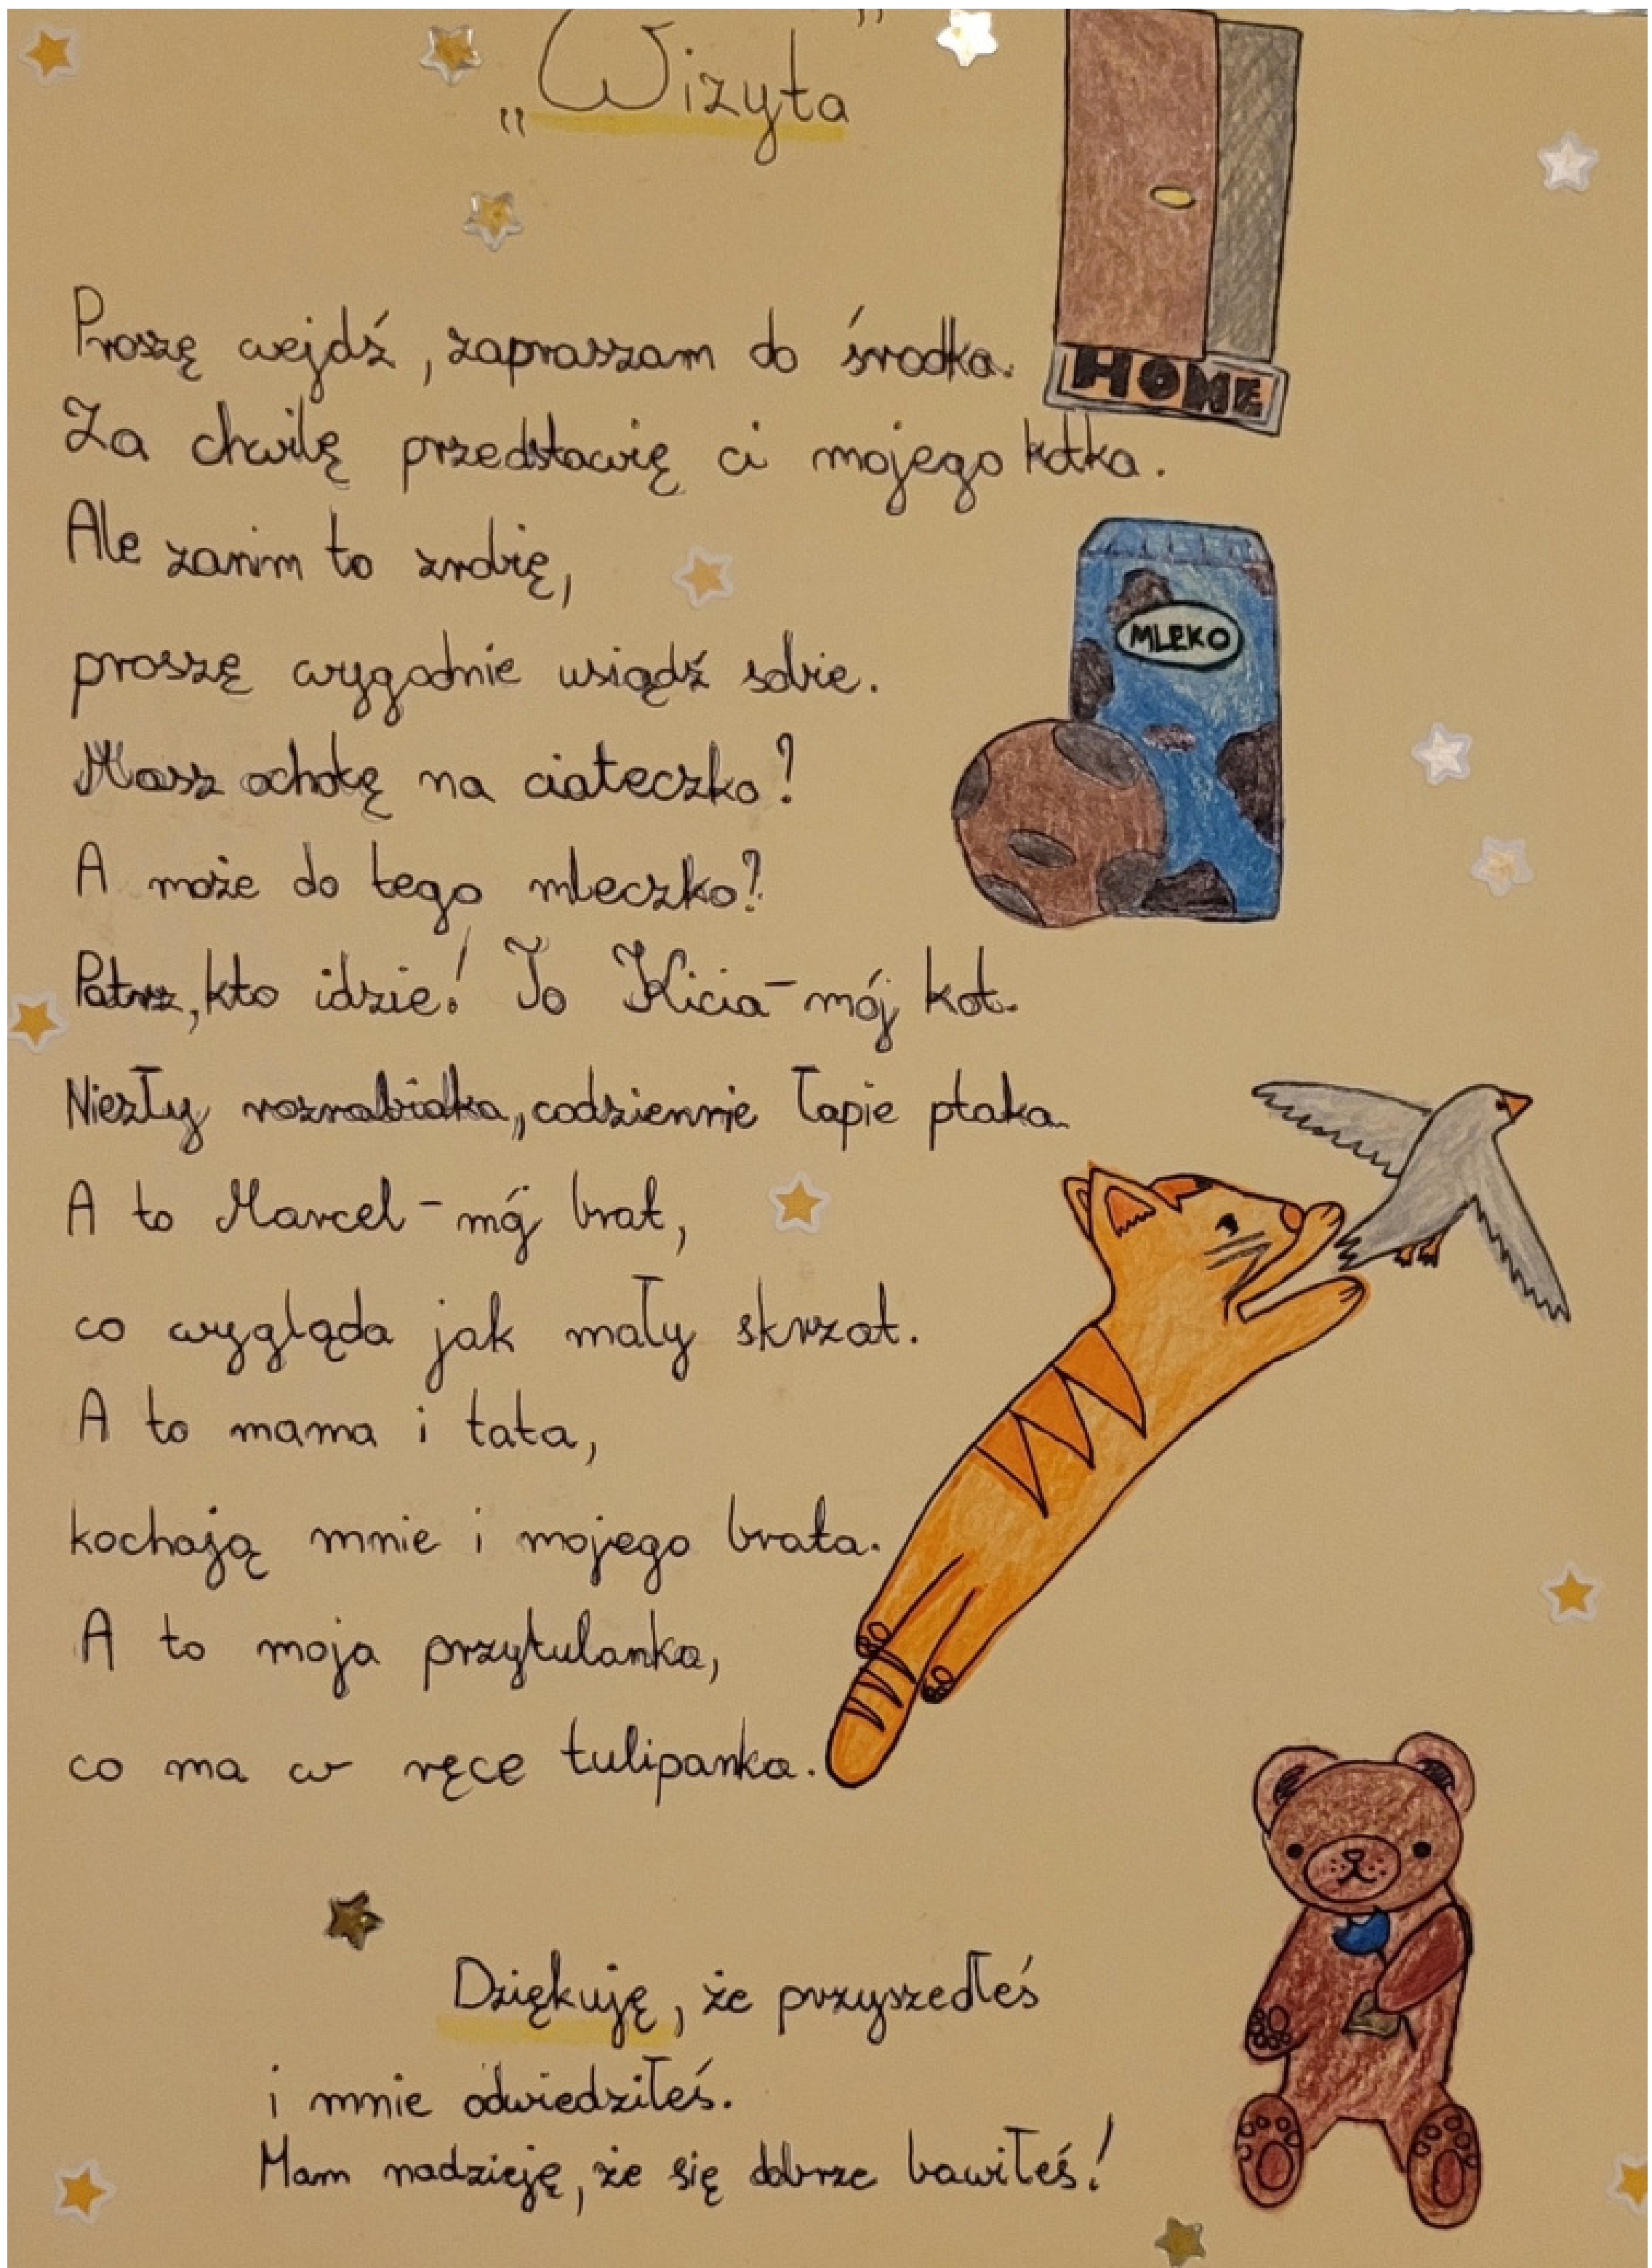 „Wizyta”
Proszę wejdź, zapraszam do środka.
HOME
Za chwilę przedstawię ci mojego kotka.
Ale zanim to zrobię,
proszę wygodnie usiądź sobie.
MLEKO
Masz ochotę na ciasteczko?
A może do tego mleczko?
Patrz, kto idzie! To Kicia - mój kot.
Niezły rozrabiaka, codziennie łapie ptaka.
A to Marcel - mój brat,
co wygląda jak mały skrzat.
A to mama i tata,
kochają mnie i mojego brata.
A to moja przytulanka,
co ma w ręce tulipanka.
Dziękuję, że przyszedłeś
i mnie odwiedziłeś.
Mam nadzieję, że się dobrze bawiłeś!